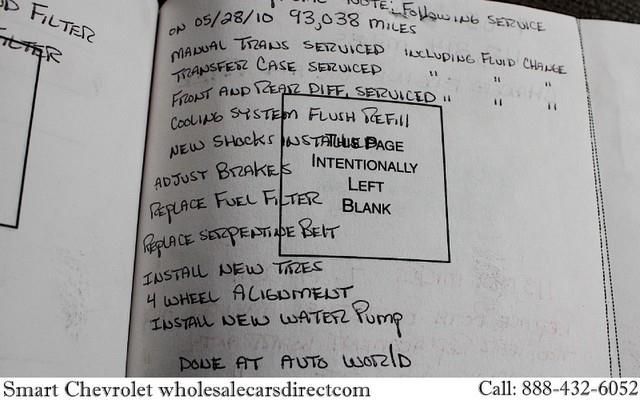 D FILTER
FILTER
NOTE: FOLLOWING SERVICE
ON 05/28/10 93,038 MILES
MANUAL TRANS SERVICED INCLUDING FLUID CHANGE
TRANSFER CASE SERVICED " " "
FRONT AND REAR DIFF. SERVICED " " "
COOLING SYSTEM FLUSH REFILL
NEW SHOCKS INSTALLED
ADJUST BRAKES
REPLACE FUEL FILTER
REPLACE SERPENTINE BELT
INSTALL NEW TIRES
4 WHEEL ALIGNMENT
INSTALL NEW WATER PUMP
DONE AT AUTO WORLD
THIS PAGE
INTENTIONALLY
LEFT
BLANK
Smart Chevrolet wholesalecarsdirectcom Call: 888-432-6052